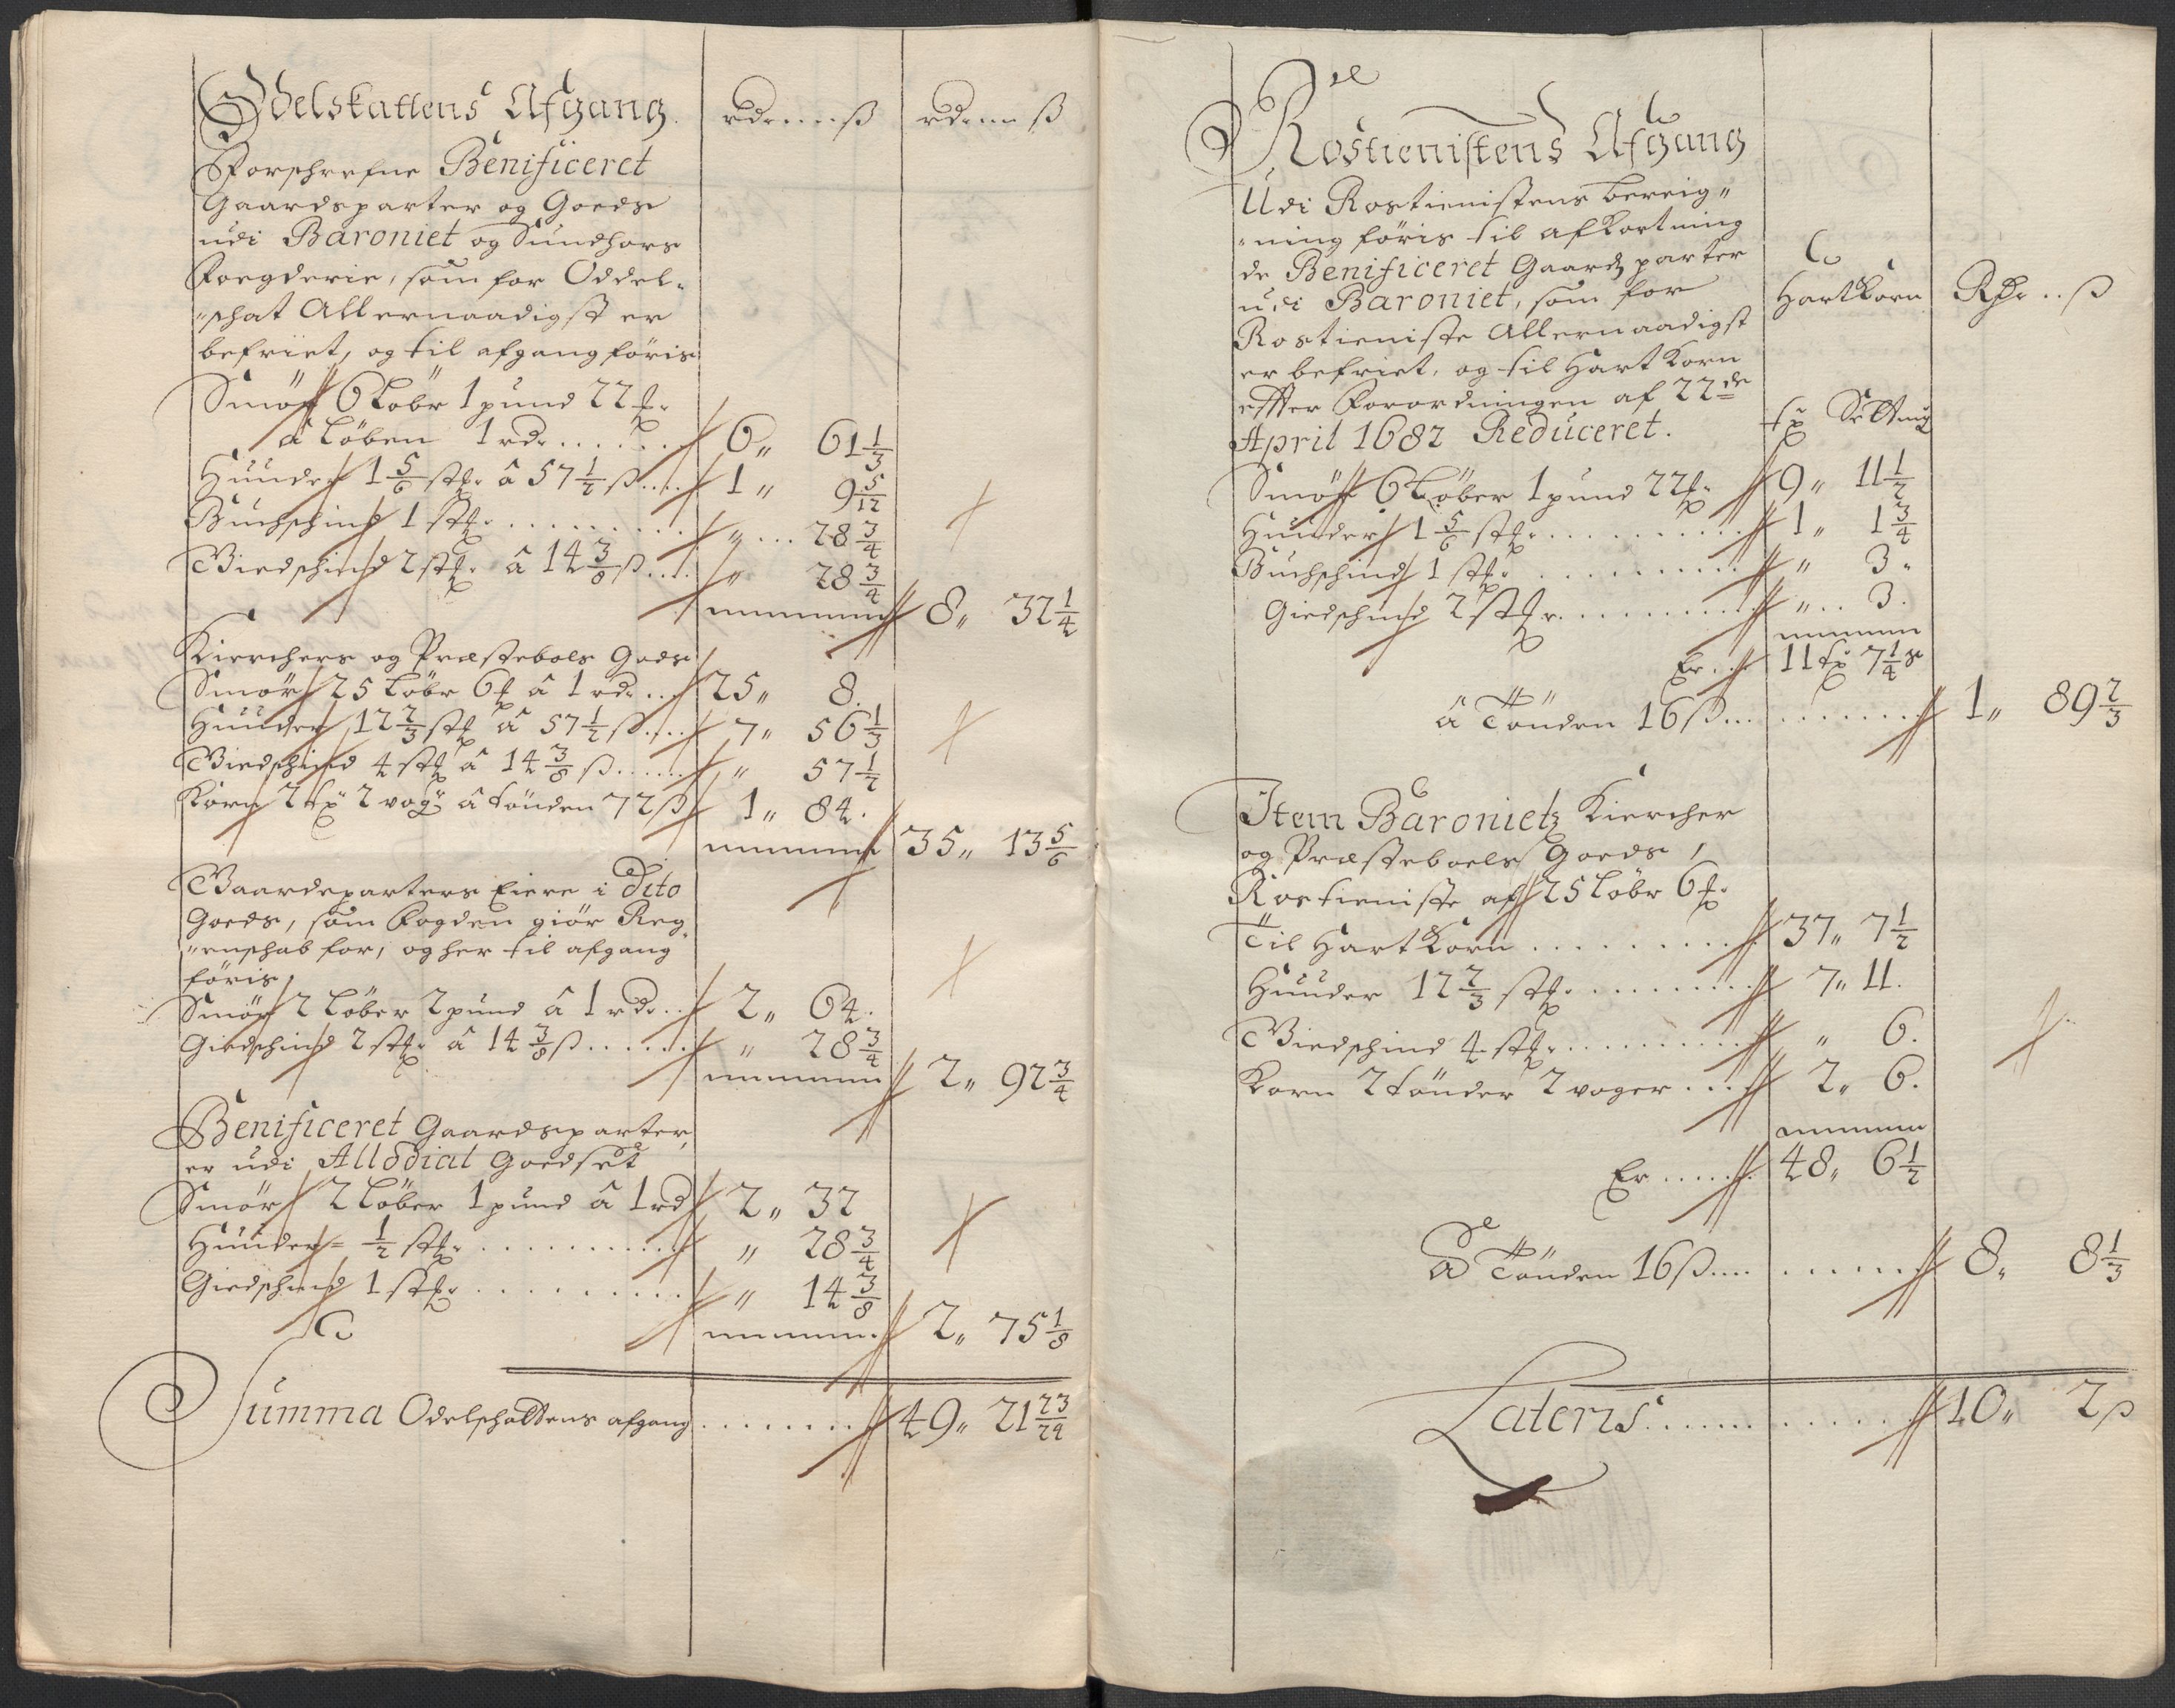 Odelskattens Afgang. rdr ß rdr ß
Forschrefne Benificeret
Gaardsparter og Goeds
udi Baroniet og Sundhors
Foegderie, som for Oddel-
"schat Allernaadigst er
befriet, og til afgang föris
Smör 6 Löbr 1 pund 22 ℔.
â Löben 1 rdr ...... 6" 61 1/3
Huuder 1 5/6 stk. â 57 1/2 ß.... 1" 9 5/12
Buchschind 1 stk. ........ " ... 28 3/4
Giedschind 2 stk. â 14 3/8 ß.... " 28 3/4
8" 32 1/4
Kierchers og Præstebols Gods
Smör 25 Löbr 6 ℔ â 1 rdr... 25" 8.
Huuder 12 2/3 stk â 57 1/2 ß.... 7" 56 1/3
Giedschind 4 stk â 14 3/8 ß...... " 57 1/2
Korn 2 tr 2 vogr â tönden 72 ß 1" 84.
35" 13 5/6
Gaardsparters Eiere i Dito
Goeds, som Fogden giör Reg
"enschab for, og her til afgang
föris,
Smör 2 Löber 2 pund â 1 rdr.. 2" 64.
Giedschind 2 stk. â 14 3/8 ß...... " 28 3/4
2" 92 3/4
Benificeret Gaardsparter,
er udi Allodial Goedset
Smör 2 Löber 1 pund â 1 rd 2" 32
Huuder - 1/2 stk. .......... " 28 3/4
Giedschind 1 stk. .......... " 14 3/8
2" 75 1/8
Summa Odelschattens afgang ........ 49" 21 23/24
Rostienistens Afgang
Udi Rostienistens bereig"
"ning föris til afkortning
de Benificeret Gaardz parter
udi Baroniet, som for Hartkorn Rdr .. ß
Rostieniste Allernaadigst
er befriet, og til Hart Korn
effter Forordningen af 22de
April 1682 Reduceret. tr Setting
Smör 6 Löber 1 pund 22 ℔. 9" 11 1/2
Huuder 1 5/6 stk. ......... 1" 1 3/4
Buchschind 1 stk. ......... " 3.
Giedschind 2 stk. ......... " .. 3.
Er... 11 tr 7 1/4 s
â Tönden 16 ß... ....... 1" 89 2/3
Item Baronietz Kiercher
og Præsteboels Goeds,
Rostieniste af 25 Löbr 6 ℔.
Til Hart Korn ......... 37" 7 1/2
Huuder 12 2/3 stk. ........ 7" 11.
Giedschind 4 stk. ......... " 6.
Korn 2 tönder 2 voger .... 2" 6.
Er ...... 48" 6 1/2
â Tönden 16 ß.... ...... 8" 8 1/3
Lateris ............ 10" 2 ß